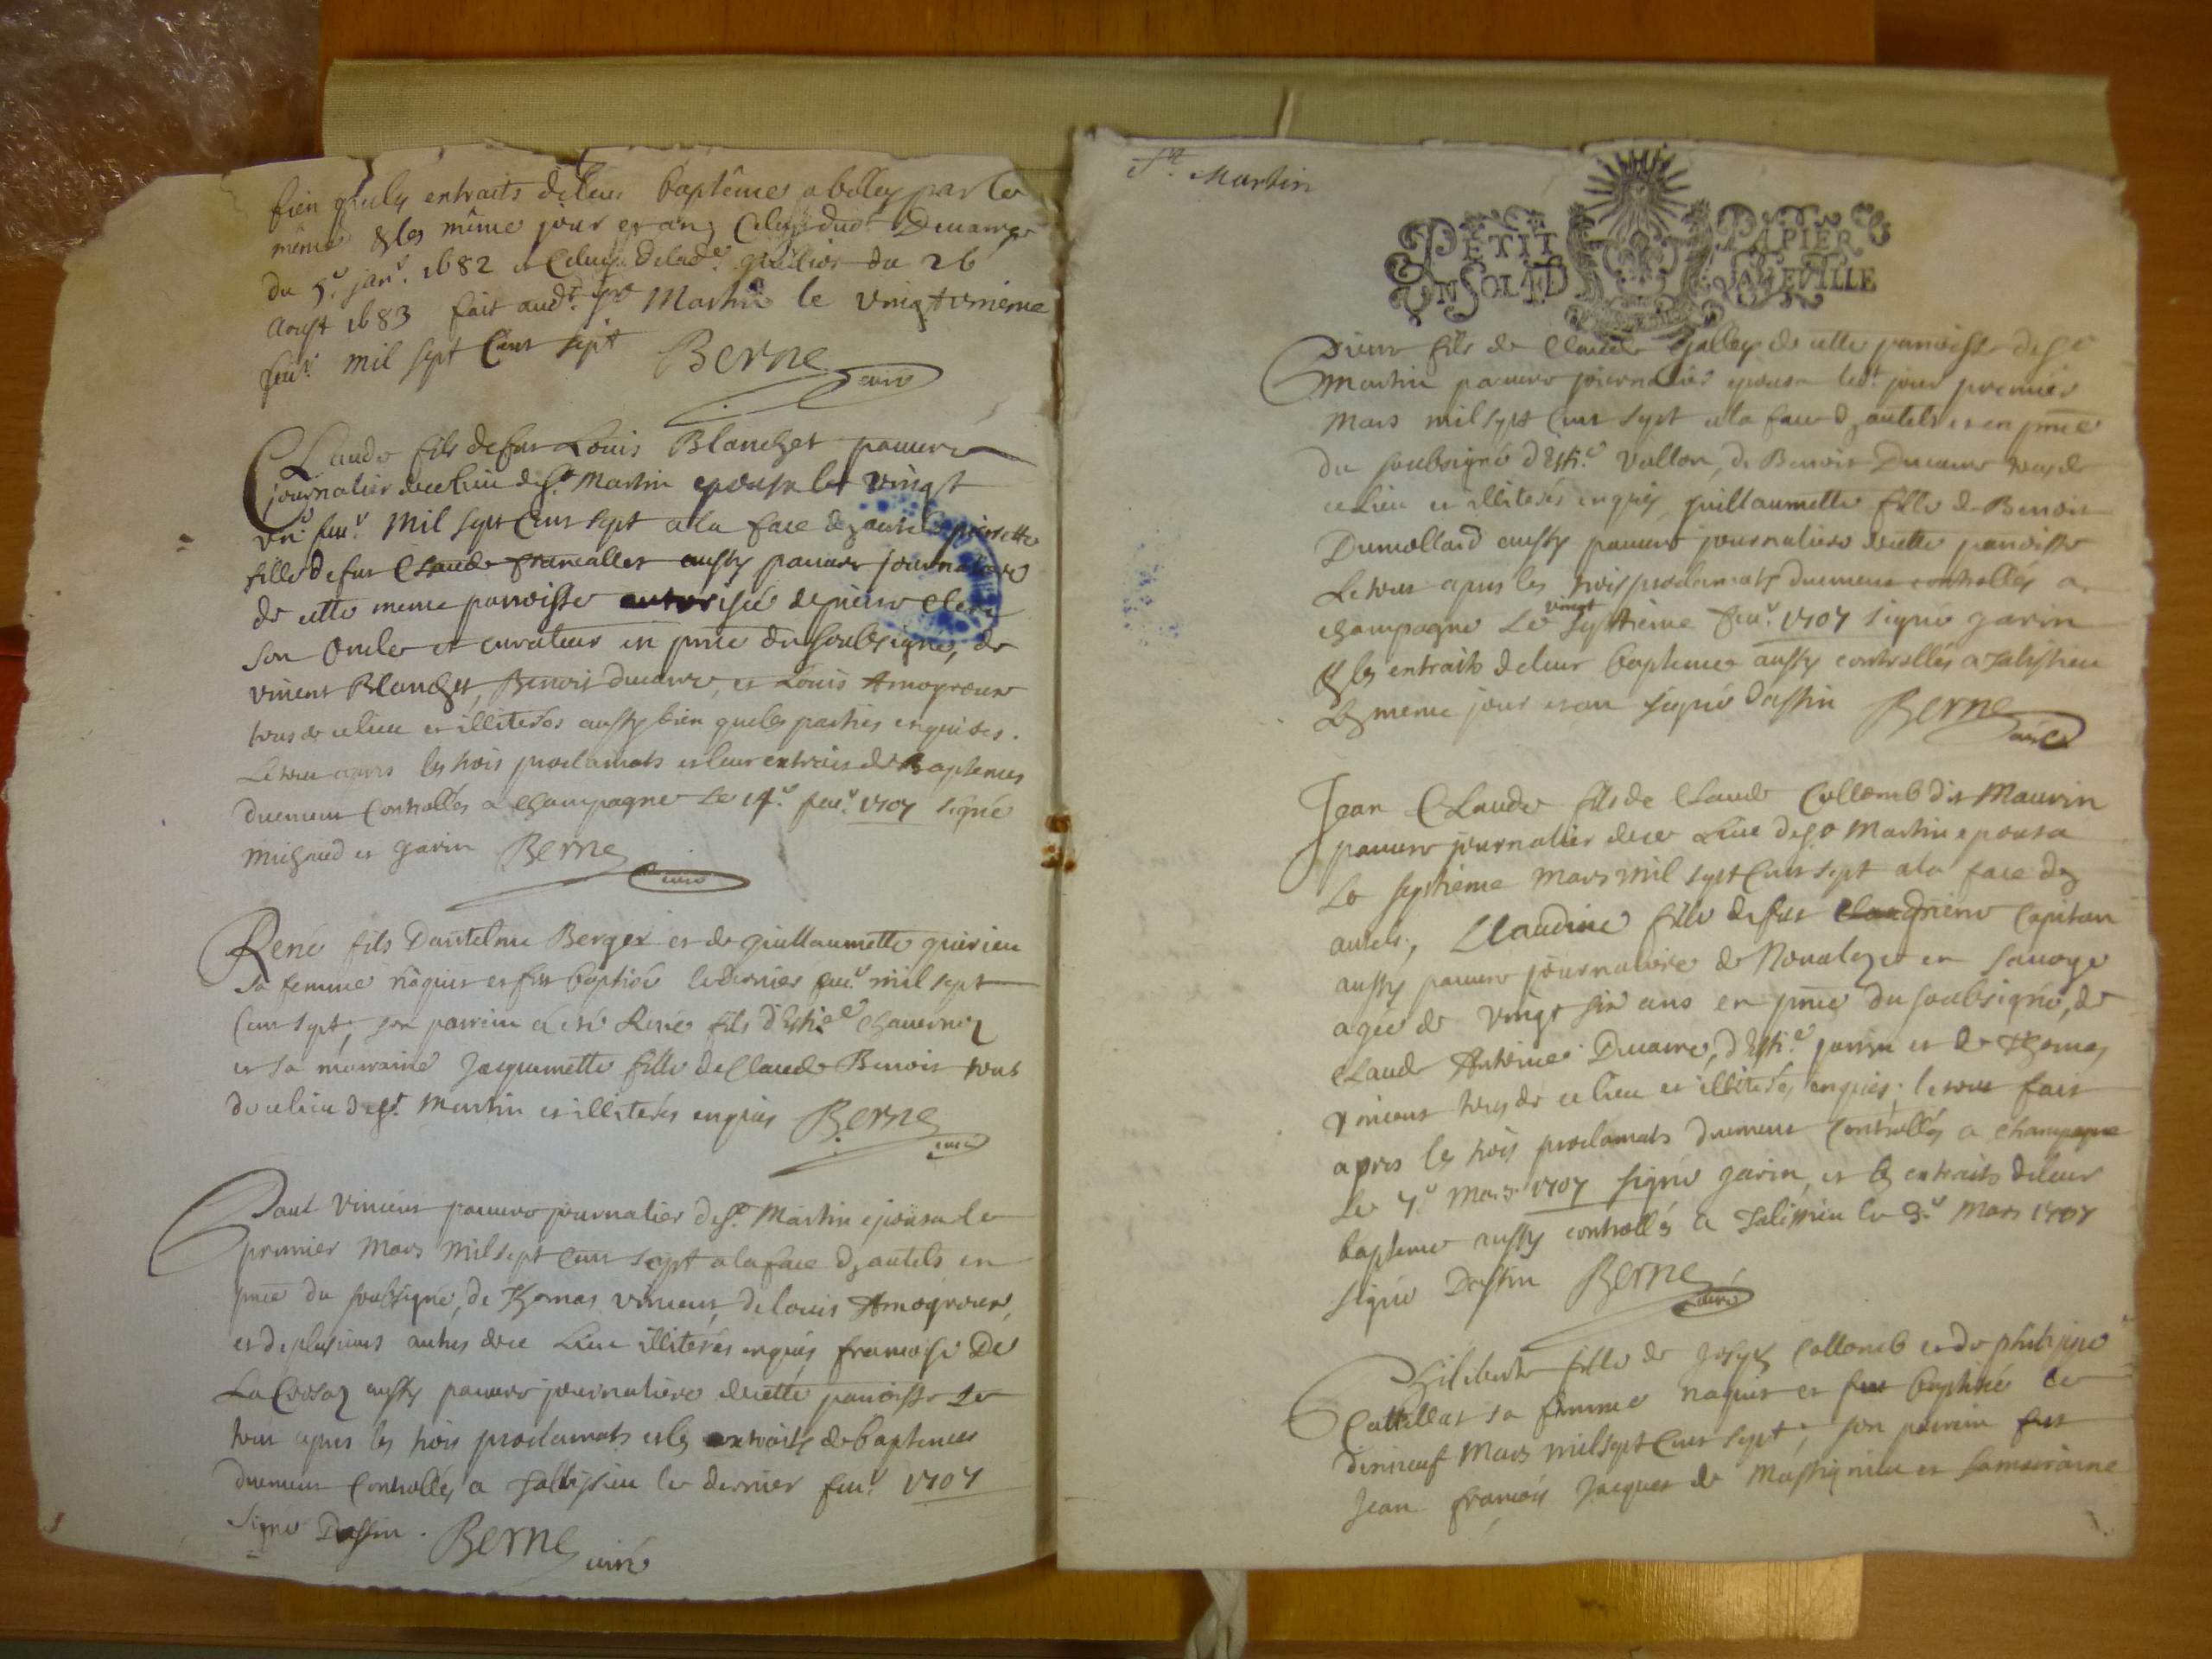 bien que les extraits de leur baptême a belley par le
même & les même jour et an; Celuy dudt Ducarre
du 5e janr. 1682 et Celuy de lade. guillior du 26
Aoust 1683 fait audt. St Martin le vingt unieme
feur. mil sept Cens sept Berne curé
Claude fils de fut Louis Blanchet pauvre
journalier de ce lieu de St. Martin epousa le vingt
un feur. Mil sept Cens sept a la face des autels pierrette
fille de fut Claude francallet aussy pauvre journaliere
de cette meme paroisse autorisée de pierre Clerc
son Oncle et curateur en pnce du soubsigné, de
vincent Blanchet, Benoit ducarre, et Louis Amogrour
tous de ce lieu et illiterés aussy bien que les parties enquises.
Le tout apres les trois proclamats et leur extrait de Baptemes
duement Controllés a Champagne Le 14e. feur. 1707 signé
Michaud et garin Berne curé
René fils Dantelme Berger et de guillaumette guerieu
sa femme nâquit et fut baptisé le dernier feur mil sept
Cens sept; son parrein a été René fils d'Estie. Chavernoz
et sa marraine Jacquemette fille de Claude Benoit tous
de ce lieu de St. Martin et illiterés enquis Berne curé
Paul vincent pauvre journalier de St. Martin epousa le
premier Mars Mil sept Cens sept a la face des autels en
pnce du soubsigné, de Thomas vincent, de louis Amogrour,
et de plusieurs autres de ce Lieu illiterés enquis françoise De
La Crosaz aussy pauvre journaliere de cette paroisse Le
tout apres les trois proclamats et les extraits de baptemes
duement Controllés a Tallissieu le dernier feur. 1707
signé Dassin. Berne curé
St. Martin
PETIT PAPIER
UN SOL 4 D LA FEVILLE
Pierre fils de Claude galley de cette paroisse de St
Martin pauvre journalier epousa ledt. jour premier
Mars mil sept Cens sept a la face des autels et en pnce
du soubsigné d'Estie. Vallon, de Benoit Ducarre tous de
ce Lieu et illiterés enquis guillaumette fille de Benoit
Dumollard aussy pauvre journaliere de cette paroisse
Le tout apres les trois proclamats duement controllés a
champagne Le vingt septieme feur. 1707 signé garin
& les extraits de leur baptemes aussy controllés a Talissieu
Les meme jour et an signé Dassin Berne curé
Jean Claude fils de Claude Collomb dit Maurin
pauvre journalier de ce Lieu de St Martin epousa
Le septieme Mars mil sept Cens sept a la face des
autels, Claudine fille de fut pierre Capitan
aussy pauvre journaliere de Novaleze en Savoye
agée de vingt six ans en pnce du soubsigné, de
Claude Antoine Ducarre, d'Estie. jarrin et de Thomas
vincent tous de ce lieu et illiterés, enquis; le tout fait
apres les trois proclamats duement Controllés a Champagne
Le 7e Mars 1707 signé garin, et les extraits de leur
baptemes aussy controllés a Talissieu le 3e Mars 1707
signé Dassin Berne curé
Philiberte fille de Joseph Collomb et de philippe
Cattillat sa femme naquit et fut baptisé le
dixneuf Mars mil sept Cens sept; son parrein fut
Jean françois Jacquet de Massignieu et sa marraine